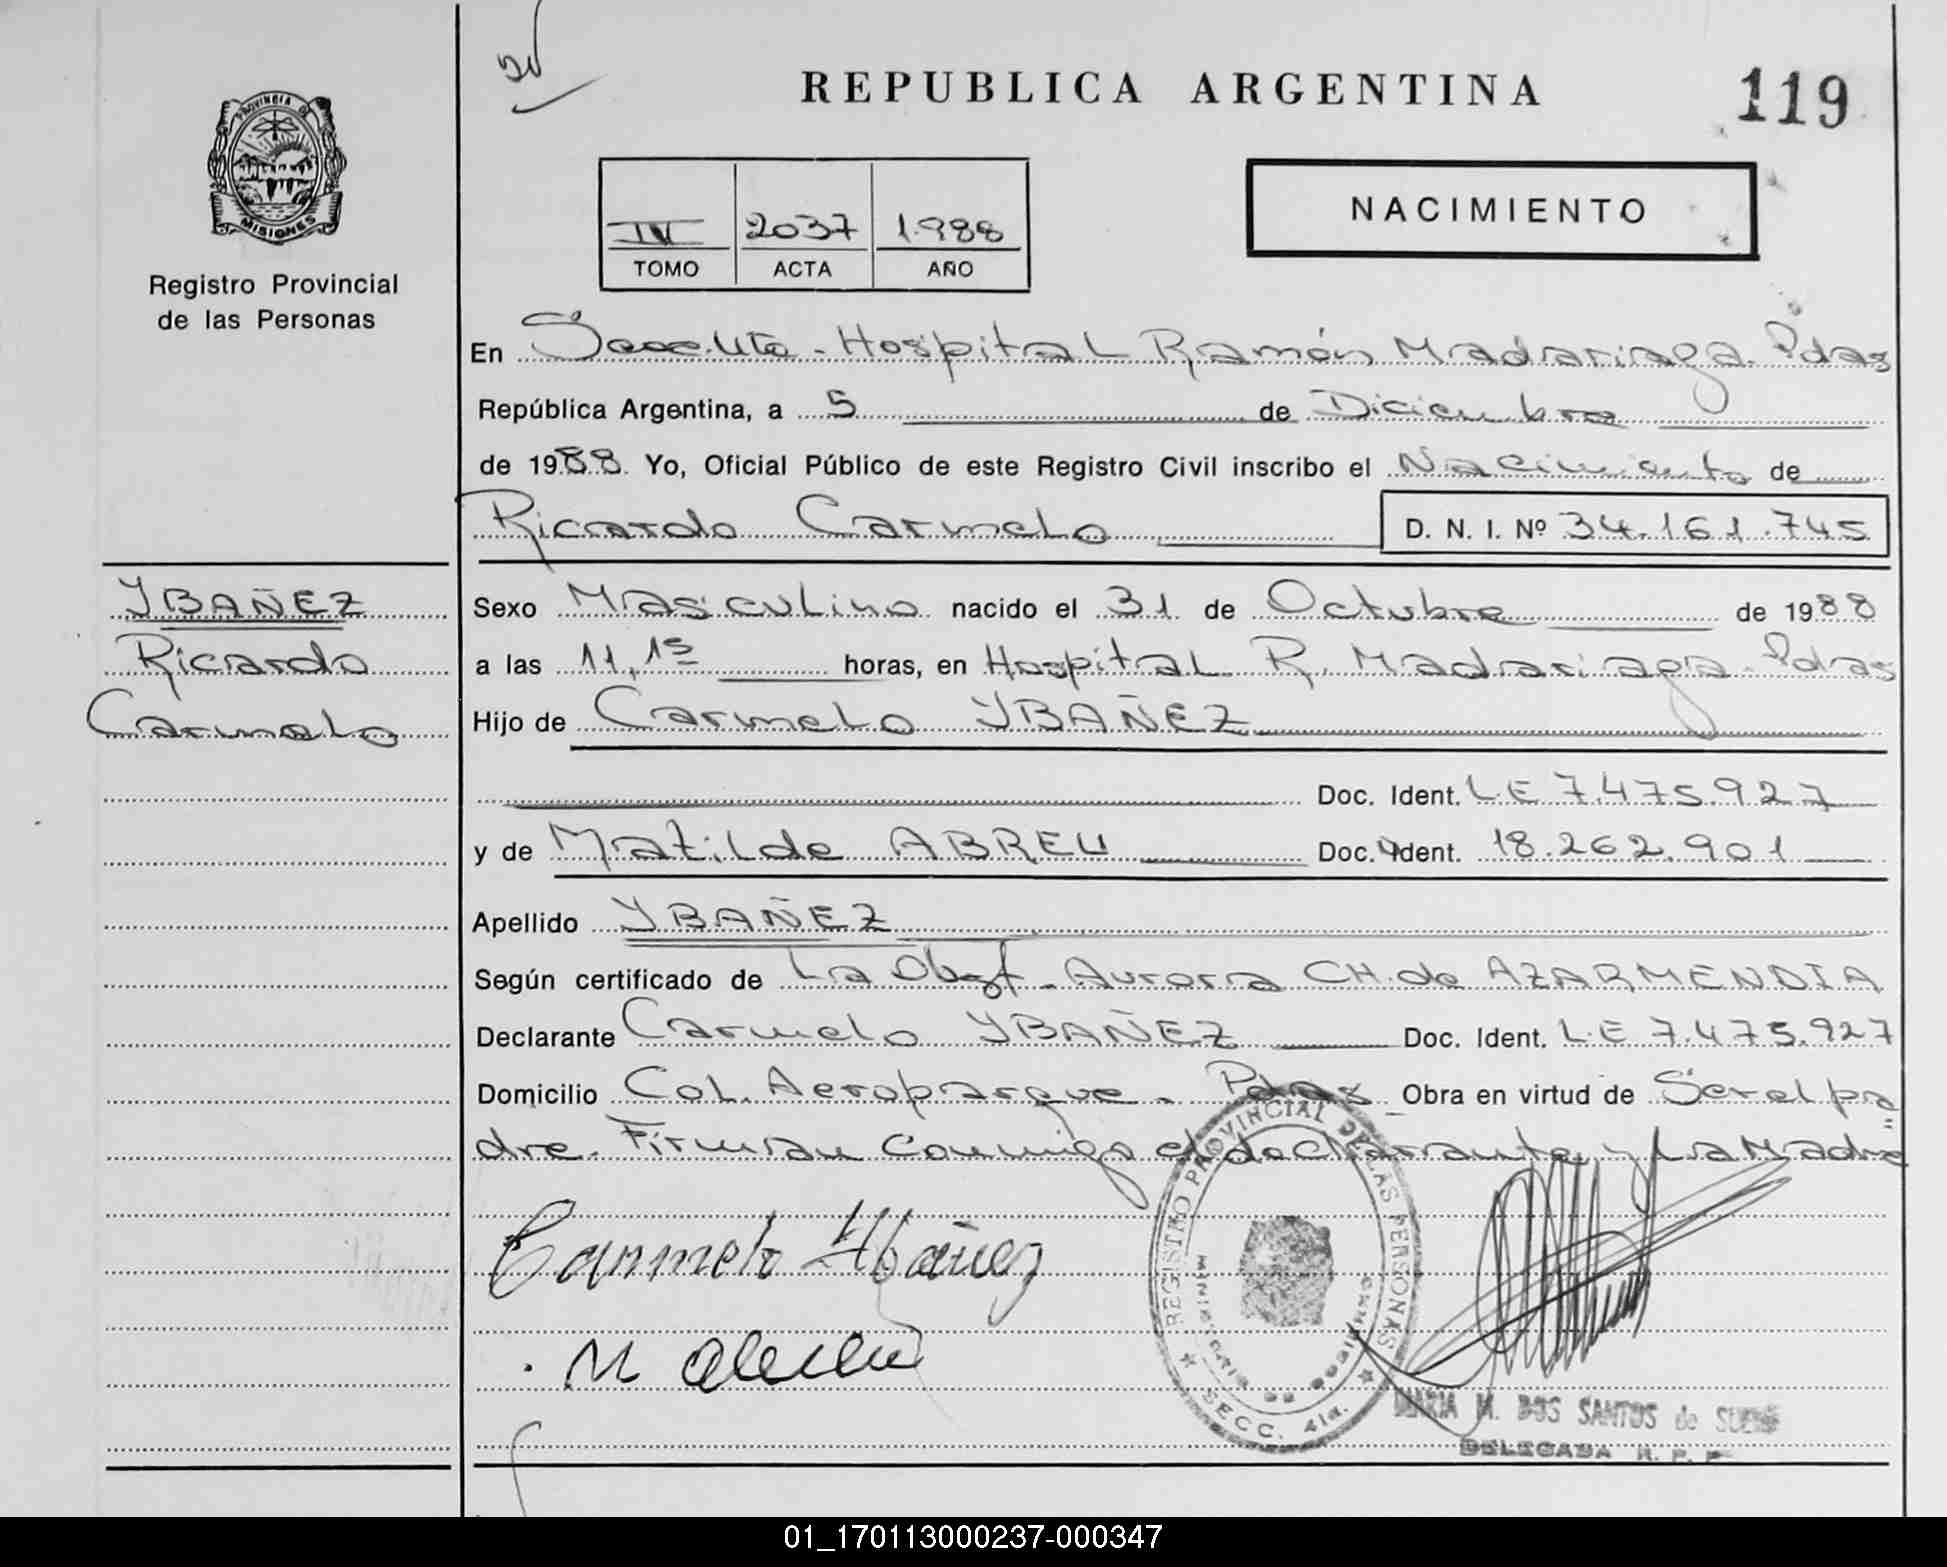 REPUBLICA ARGENTINA
119
PROVINCIA DE
MISIONES
Registro Provincial
de las Personas
IV 2037 1988
TOMO ACTA AÑO
NACIMIENTO
En Secc. 4ta - Hospital Ramón Madariaga. Pdas
República Argentina, a 5 de Diciembre
de 1988. Yo, Oficial Público de este Registro Civil inscribo el Nacimiento de
Ricardo Carmelo D. N. I. Nº 34.161.745
YBAÑEZ
Ricardo
Carmelo
Sexo Masculino nacido el 31 de Octubre de 1988
a las 11,15 horas, en Hospital R. Madariaga - Pdas
Hijo de Carmelo YBAÑEZ
Doc. Ident. LE 7.475.927
y de Matilde ABREU Doc. Ident. 18.262.901
Apellido YBAÑEZ
Según certificado de La Obst. Aurora CH. de AZARMENDIA
Declarante Carmelo YBAÑEZ Doc. Ident. L.E 7.475.927
Domicilio Col. Aeroparque - Pdas Obra en virtud de Ser el pa
dre. Firman conmigo el declarante y La Madre
Carmelo Ybañez
REGISTRO PROVINCIAL DE LAS PERSONAS
MINISTERIO DE GOBIERNO
SECC. 4ta.
MARIA M. DOS SANTOS de
DELEGADA R. P. P.
01_170113000237-000347